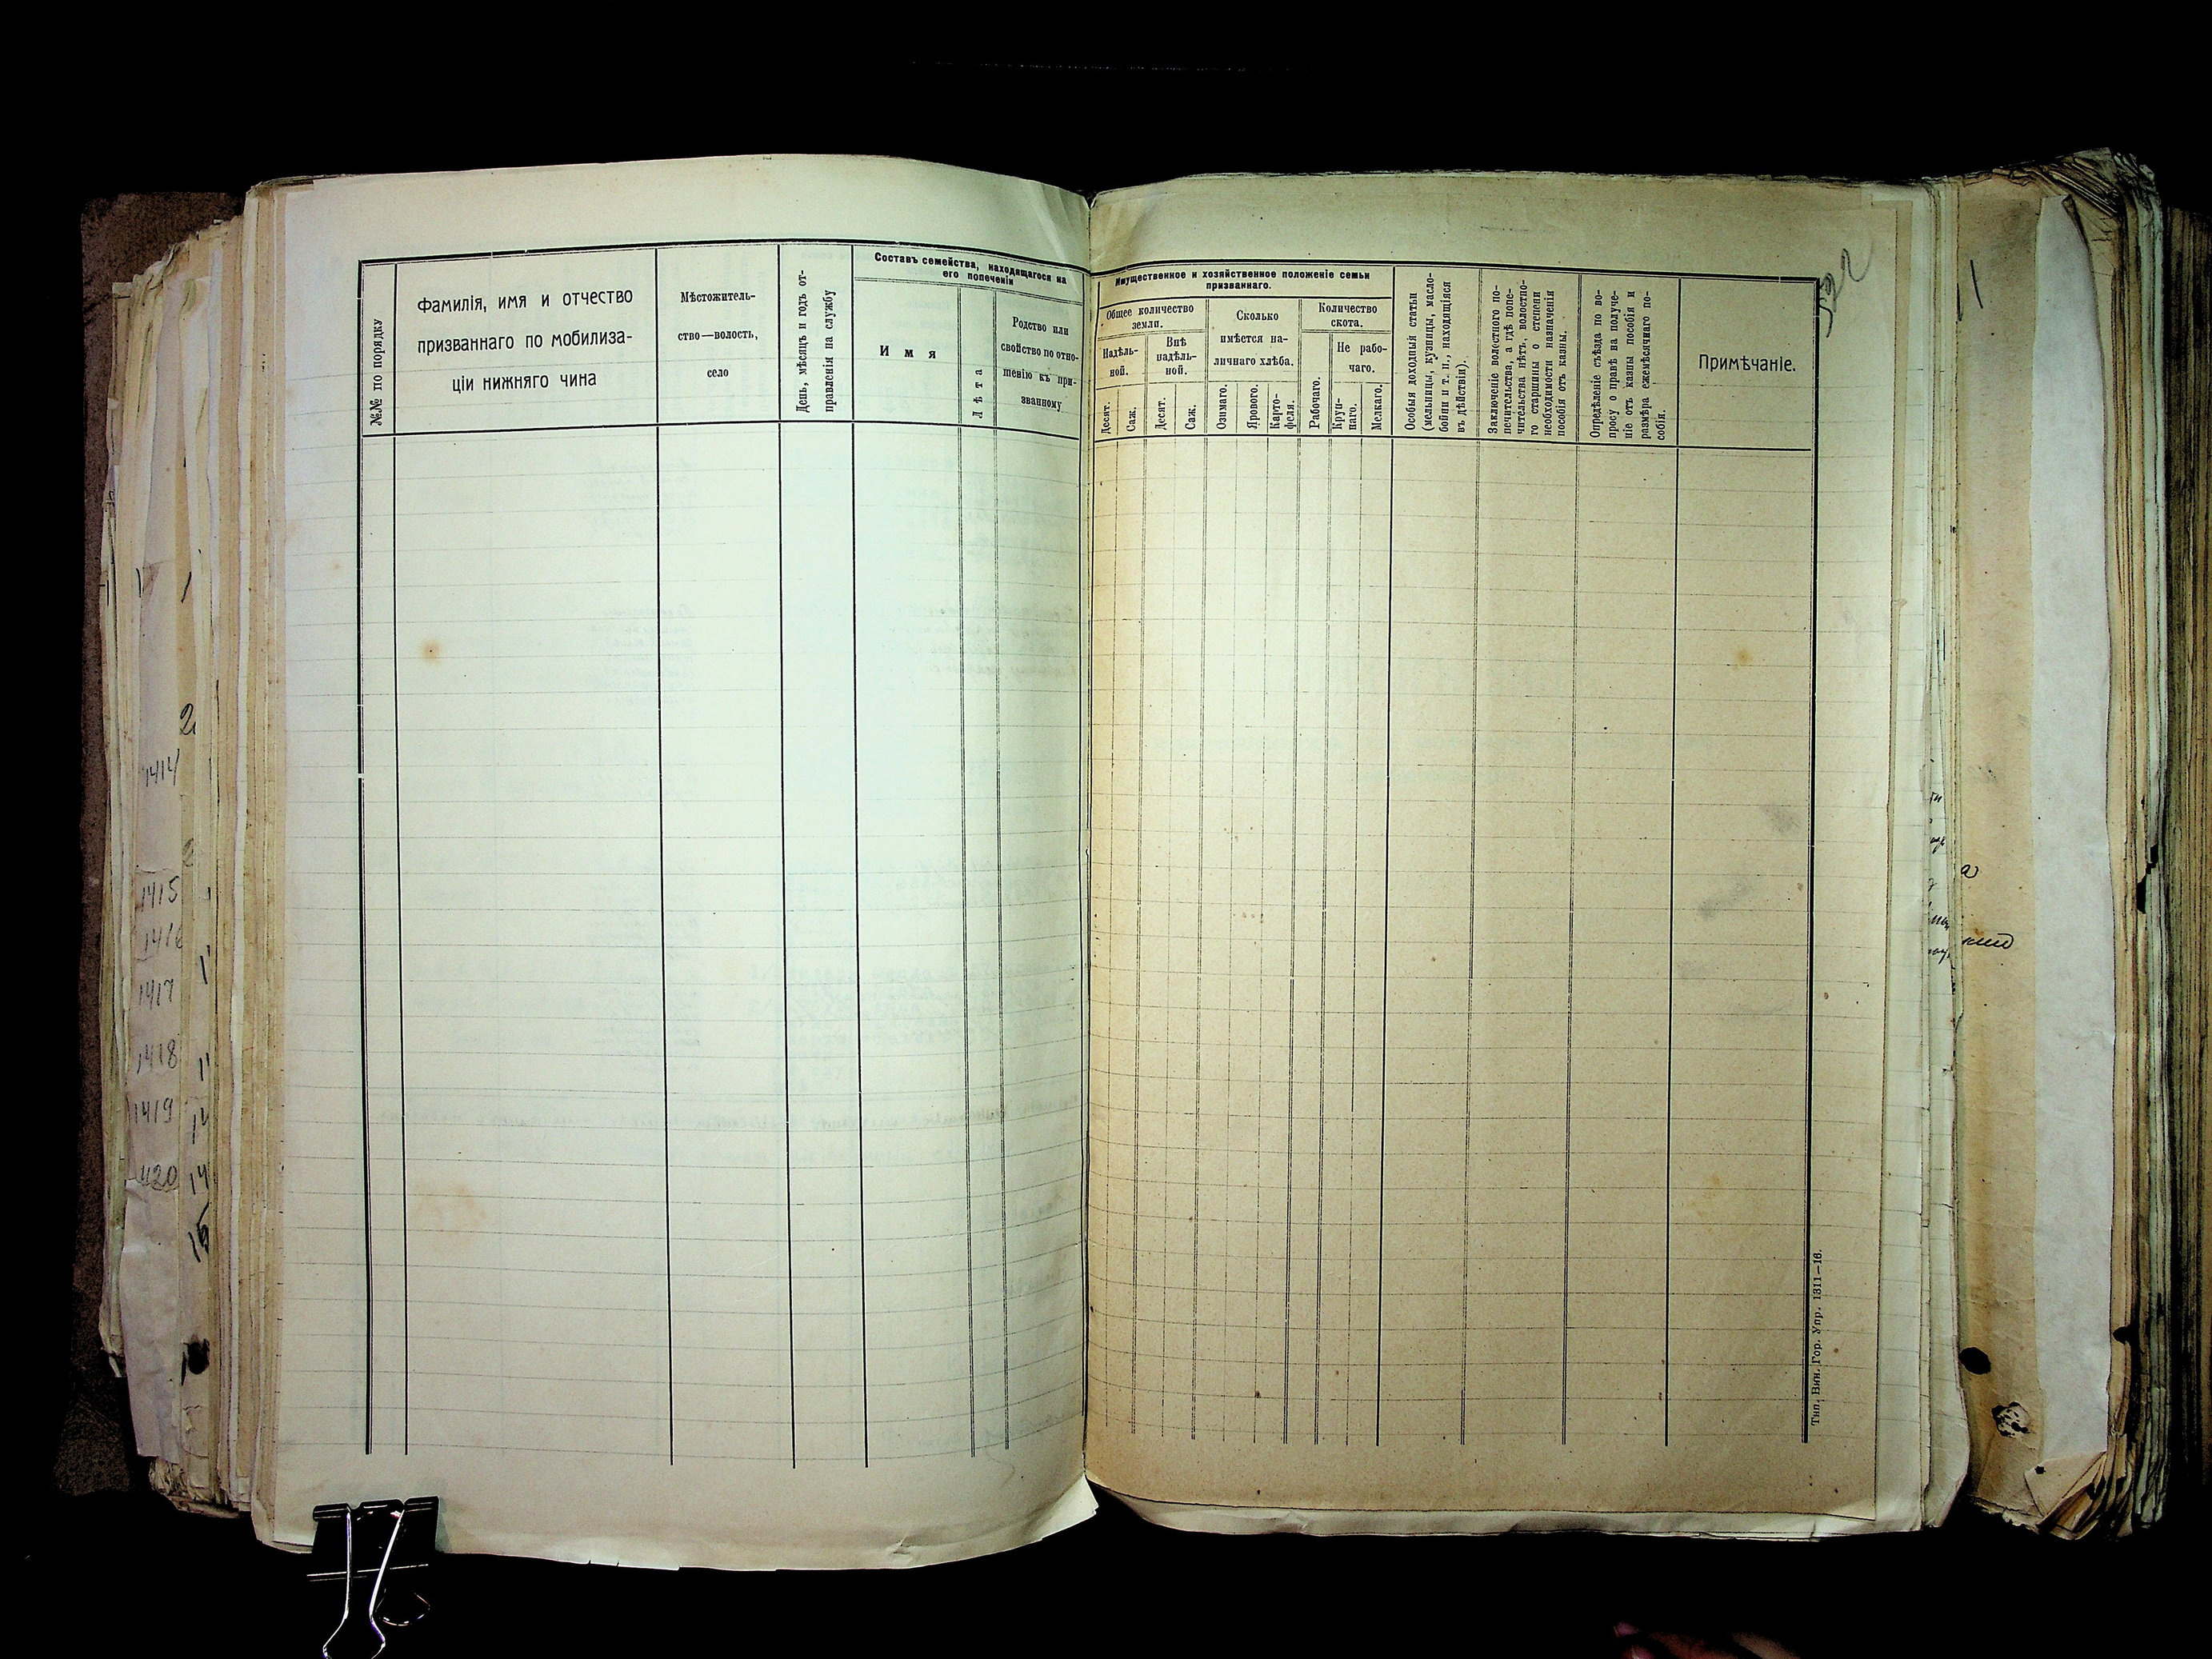 №№ по порядку
Фамилія, имя и отчество
призваннаго по мобилиза-
ціи нижняго чина
Мѣстожитель-
ство—волость,
село
День, мѣсяцъ и годъ от-
правленія на службу
Составъ семейства, находящагося на
его попеченіи
Имя
Лѣта
Родство или
свойство по отно-
шенію къ при-
званному
Имущественное и хозяйственное положеніе семьи
призваннаго.
Общее количество
земли.
Надѣль-
ной.
Десят.
Саж.
Внѣ
надѣль-
ной.
Десят.
Саж.
Сколько
имѣется на-
личнаго хлѣба.
Озимаго.
Ярового.
Карто-
феля.
Количество
скота.
Рабочаго.
Не рабо-
чаго.
Круп-
наго.
Мелкаго.
Особыя доходныя статьи
(мельницы, кузницы, масло-
бойни и т. п., находящіяся
въ дѣйствіи).
Заключеніе волостного по-
печительства, а гдѣ попе-
чительства нѣтъ, волостно-
го старшины о степени
необходимости назначенія
пособія отъ казны.
Опредѣленіе съѣзда по во-
просу о правѣ на получе-
ніе отъ казны пособія и
размѣра ежемѣсячнаго по-
собія.
Примѣчаніе.
Тип. Ниж. Гор. Упр. 1311—16.
2
1414
1415
1416
1417
1418
1419
1420
14
14
15